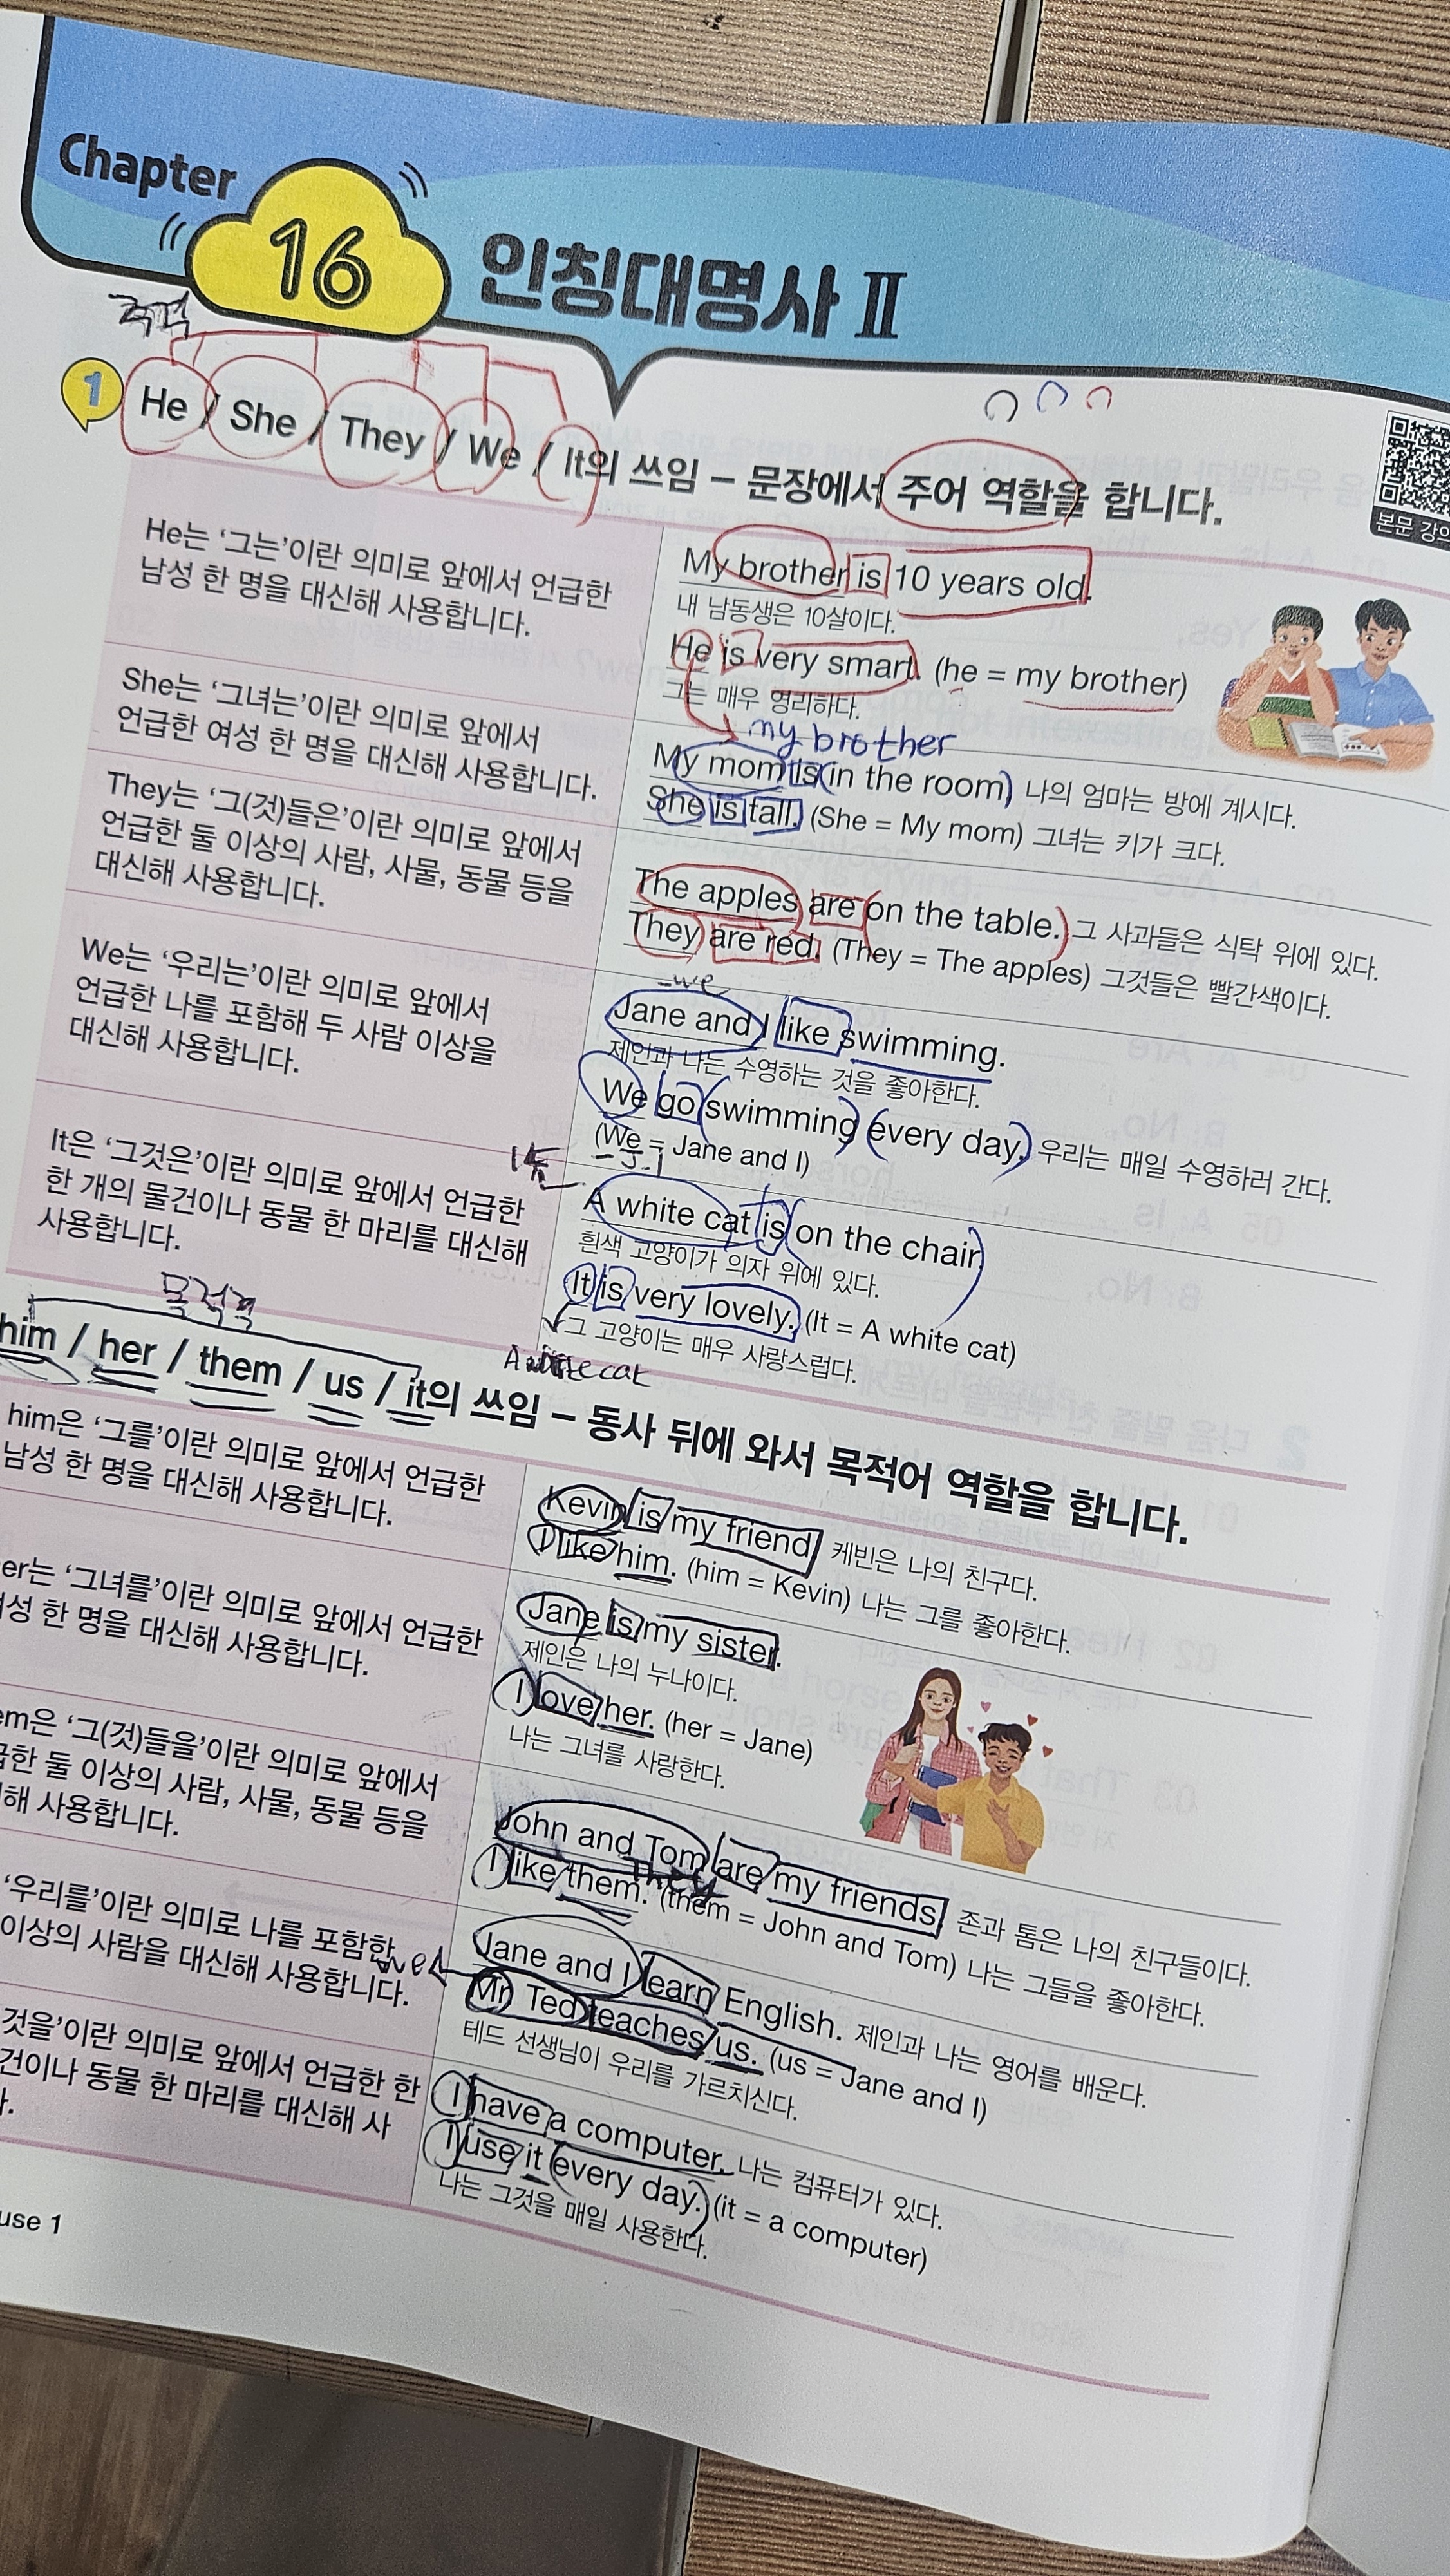 Chapter
16
인칭대명사 Ⅱ
주격
1
He / She / They / We / It의 쓰임 – 문장에서 주어 역할을 합니다.
본문 강의
He는 ‘그는’이란 의미로 앞에서 언급한
남성 한 명을 대신해 사용합니다.
My brother is 10 years old.
내 남동생은 10살이다.
He is very smart. (he = my brother)
그는 매우 영리하다.
my brother
She는 ‘그녀는’이란 의미로 앞에서
언급한 여성 한 명을 대신해 사용합니다.
My mom is in the room 나의 엄마는 방에 계시다.
She is tall. (She = My mom) 그녀는 키가 크다.
They는 ‘그(것)들은’이란 의미로 앞에서
언급한 둘 이상의 사람, 사물, 동물 등을
대신해 사용합니다.
The apples are on the table. 그 사과들은 식탁 위에 있다.
They are red. (They = The apples) 그것들은 빨간색이다.
we
We는 ‘우리는’이란 의미로 앞에서
언급한 나를 포함해 두 사람 이상을
대신해 사용합니다.
Jane and I like swimming.
제인과 나는 수영하는 것을 좋아한다.
We go swimming every day. 우리는 매일 수영하러 간다.
(We = Jane and I)
It은 ‘그것은’이란 의미로 앞에서 언급한
한 개의 물건이나 동물 한 마리를 대신해
사용합니다.
A white cat is on the chair
흰색 고양이가 의자 위에 있다.
It is very lovely. (It = A white cat)
그 고양이는 매우 사랑스럽다.
A white cat
목적격
him / her / them / us / it의 쓰임 – 동사 뒤에 와서 목적어 역할을 합니다.
him은 ‘그를’이란 의미로 앞에서 언급한
남성 한 명을 대신해 사용합니다.
Kevin is my friend. 케빈은 나의 친구다.
I like him. (him = Kevin) 나는 그를 좋아한다.
er는 ‘그녀를’이란 의미로 앞에서 언급한
여성 한 명을 대신해 사용합니다.
Jane is my sister.
제인은 나의 누나이다.
I love her. (her = Jane)
나는 그녀를 사랑한다.
em은 ‘그(것)들을’이란 의미로 앞에서
급한 둘 이상의 사람, 사물, 동물 등을
해 사용합니다.
John and Tom are my friends. 존과 톰은 나의 친구들이다.
They
I like them. (them = John and Tom) 나는 그들을 좋아한다.
‘우리를’이란 의미로 나를 포함한
이상의 사람을 대신해 사용합니다.
we
Jane and I learn English. 제인과 나는 영어를 배운다.
Mr. Ted teaches us. (us = Jane and I)
테드 선생님이 우리를 가르치신다.
것을’이란 의미로 앞에서 언급한 한
건이나 동물 한 마리를 대신해 사
다.
I have a computer. 나는 컴퓨터가 있다.
I use it every day. (it = a computer)
나는 그것을 매일 사용한다.
use 1